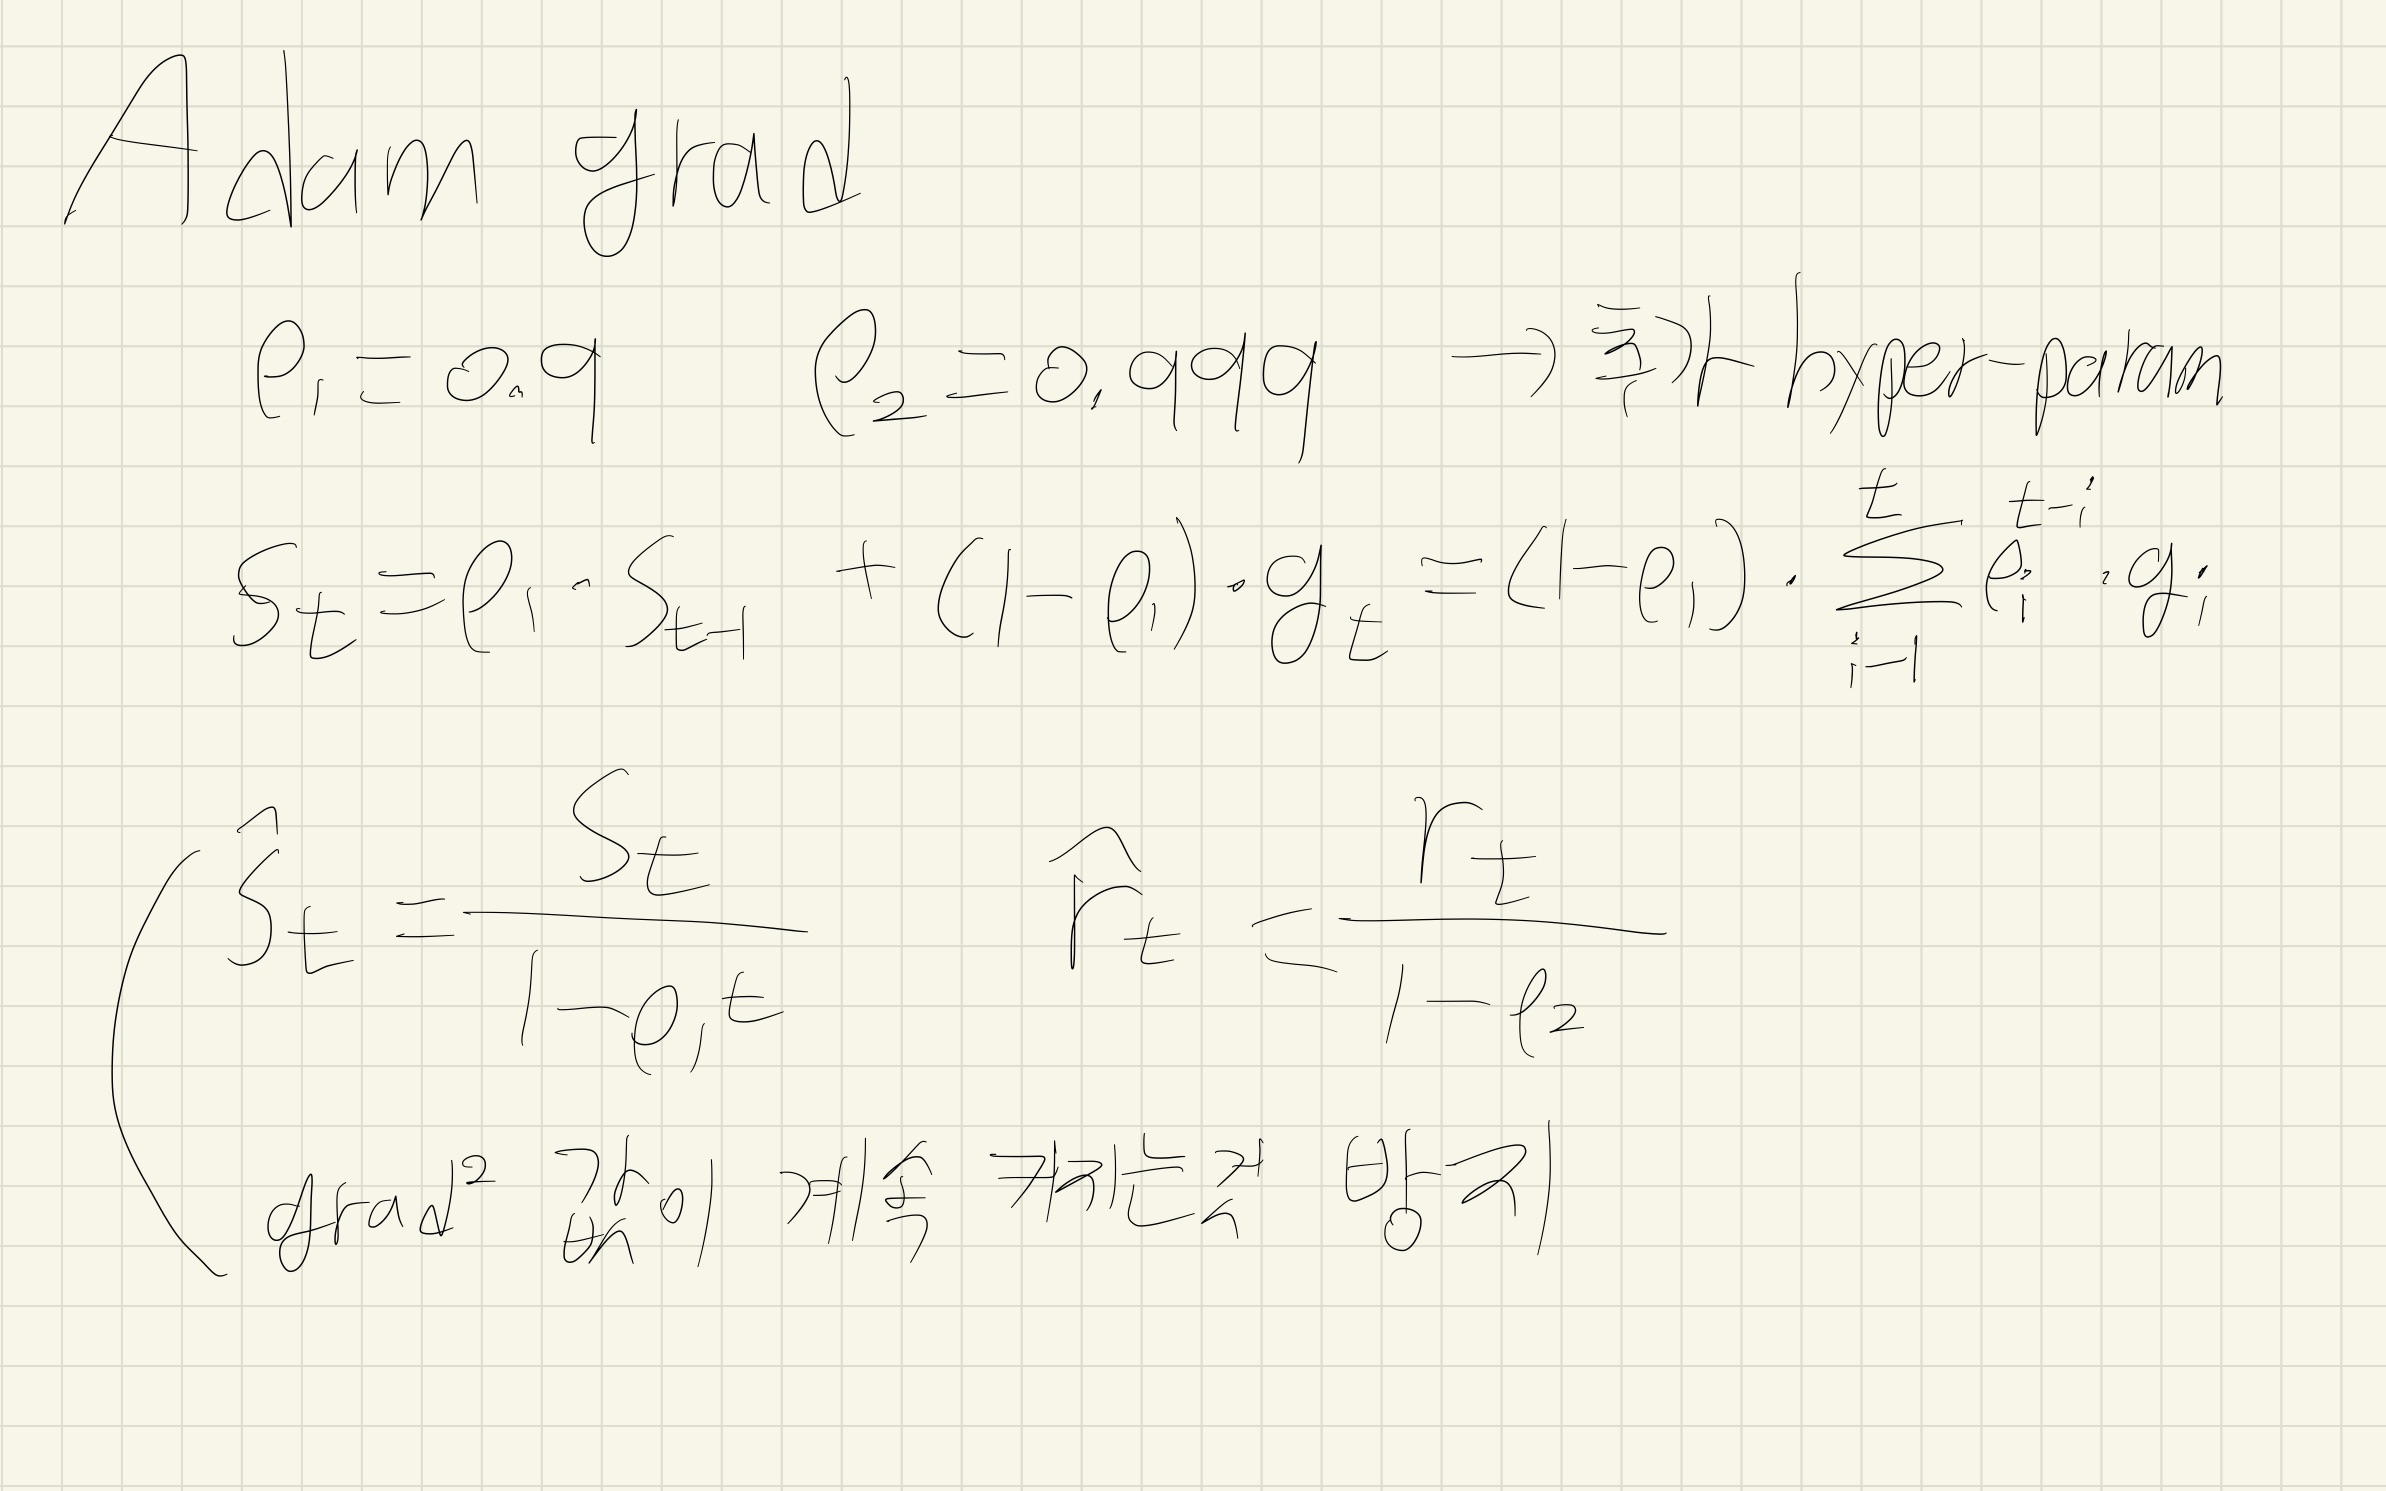 Adam grad
ρ₁ = 0.9 ρ₂ = 0.999 → 추가 hyper-param
S_t = ρ₁ · S_{t-1} + (1-ρ₁) · g_t = (1-ρ₁) · Σ_{i-1}^{t} ρ₁^{t-i} · g_i
Ŝ_t = S_t / (1-ρ₁t) r̂_t = r_t / (1-ρ₂)
grad² 값이 계속 커지는것 방지